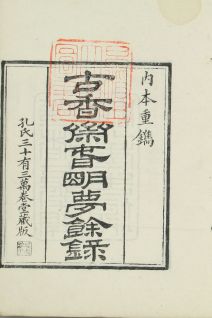 內本重鐫
古香齋春明夢餘錄
孔氏三十有三萬卷堂藏版